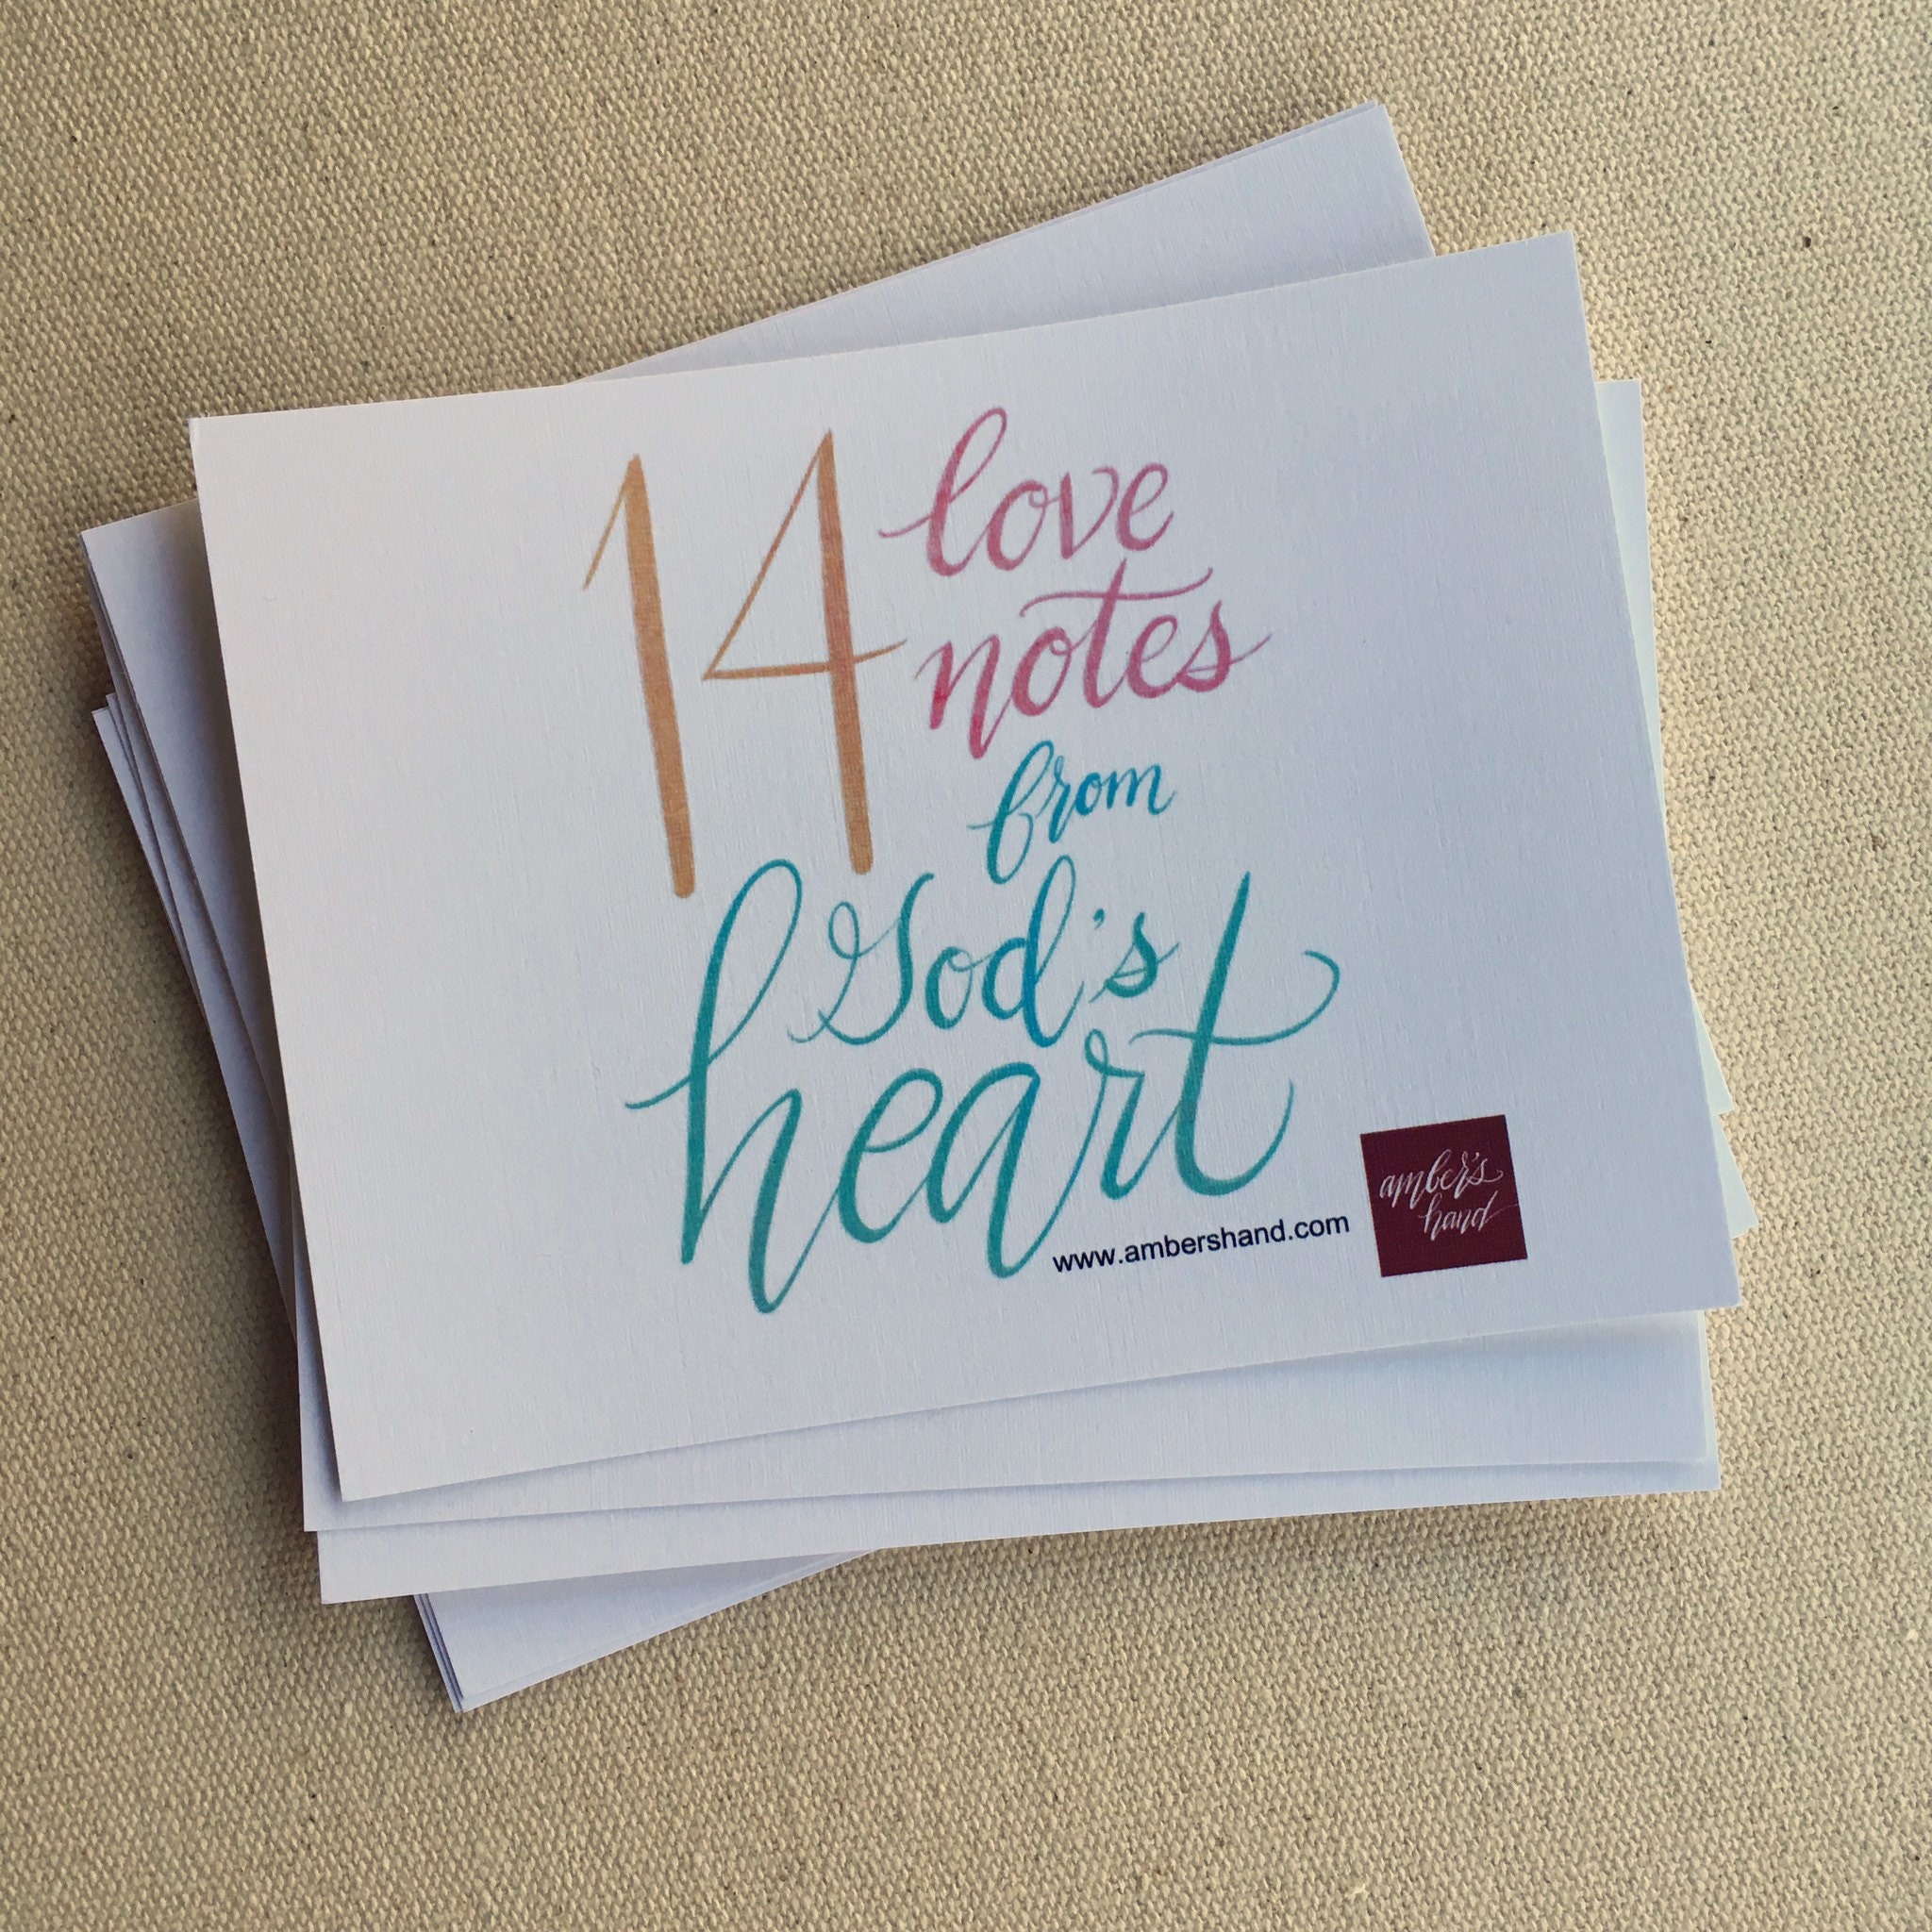 14 love
notes
from
God's
heart
www.ambershand.com
amber's
hand